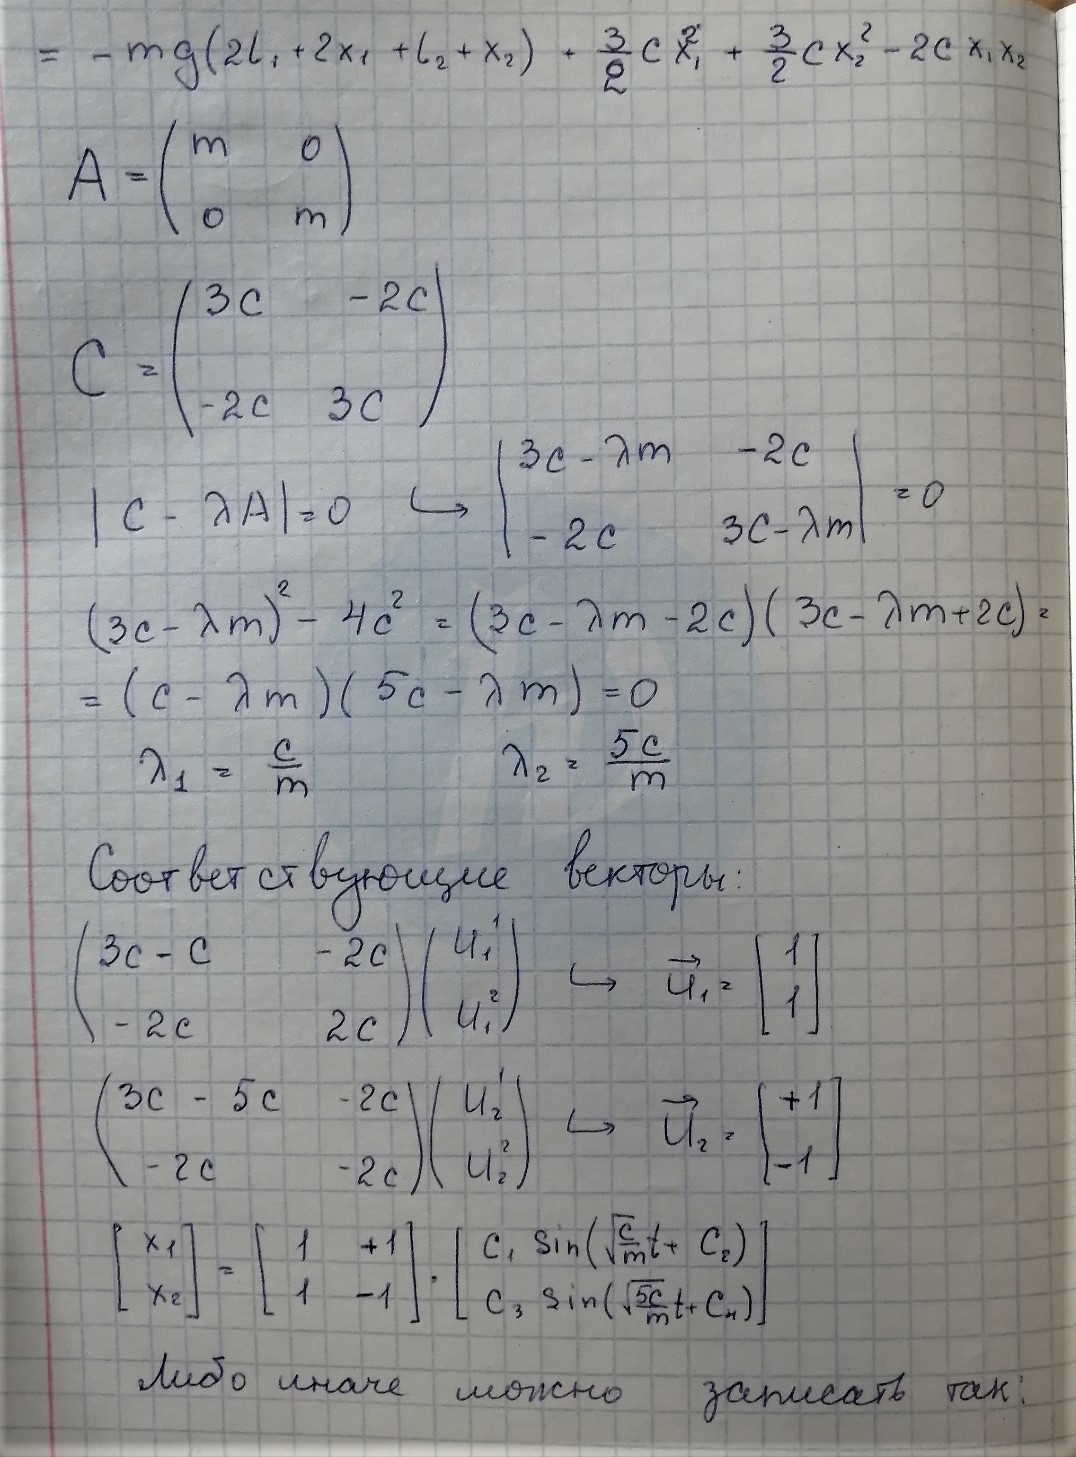 = -mg(2l₁ + 2x₁ + l₂ + x₂) + 3/2 c x₁² + 3/2 c x₂² - 2c x₁x₂
A = ( m 0
0 m )
C = ( 3c -2c
-2c 3c )
|C - λA| = 0 ↪ | 3c - λm -2c
-2c 3c - λm | = 0
(3c - λm)² - 4c² = (3c - λm - 2c)(3c - λm + 2c) =
= (c - λm)(5c - λm) = 0
λ₁ = c/m λ₂ = 5c/m
Соответствующие векторы:
( 3c - c -2c
-2c 2c ) ( u₁¹
u₁² ) ↪ u⃗₁ = [ 1
1 ]
( 3c - 5c -2c
-2c -2c ) ( u₂¹
u₂² ) ↪ u⃗₂ = [ +1
-1 ]
[ x₁
x₂ ] = [ 1 +1
1 -1 ] · [ C₁ sin(√(c/m) t + C₂)
C₃ sin(√(5c/m) t + C₄) ]
Либо иначе можно записать так: